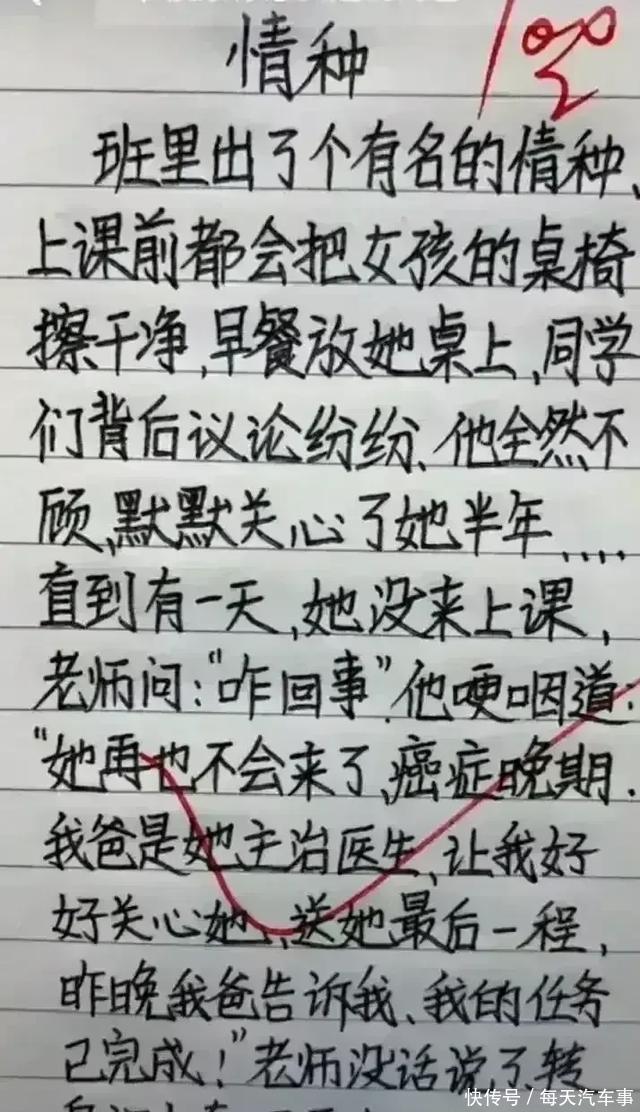 情种
100
班里出了个有名的情种、
上课前都会把女孩的桌椅
擦干净,早餐放她桌上,同学
们背后议论纷纷、他全然不
顾,默默关心了她半年....
直到有一天,她没来上课,
老师问:"咋回事".他哽咽道:
"她再也不会来了,癌症晚期.
我爸是她主治医生、让我好
好关心她,送她最后一程,
昨晚我爸告诉我、我的任务
已完成!"老师没话说了,转
快传号/每天汽车事